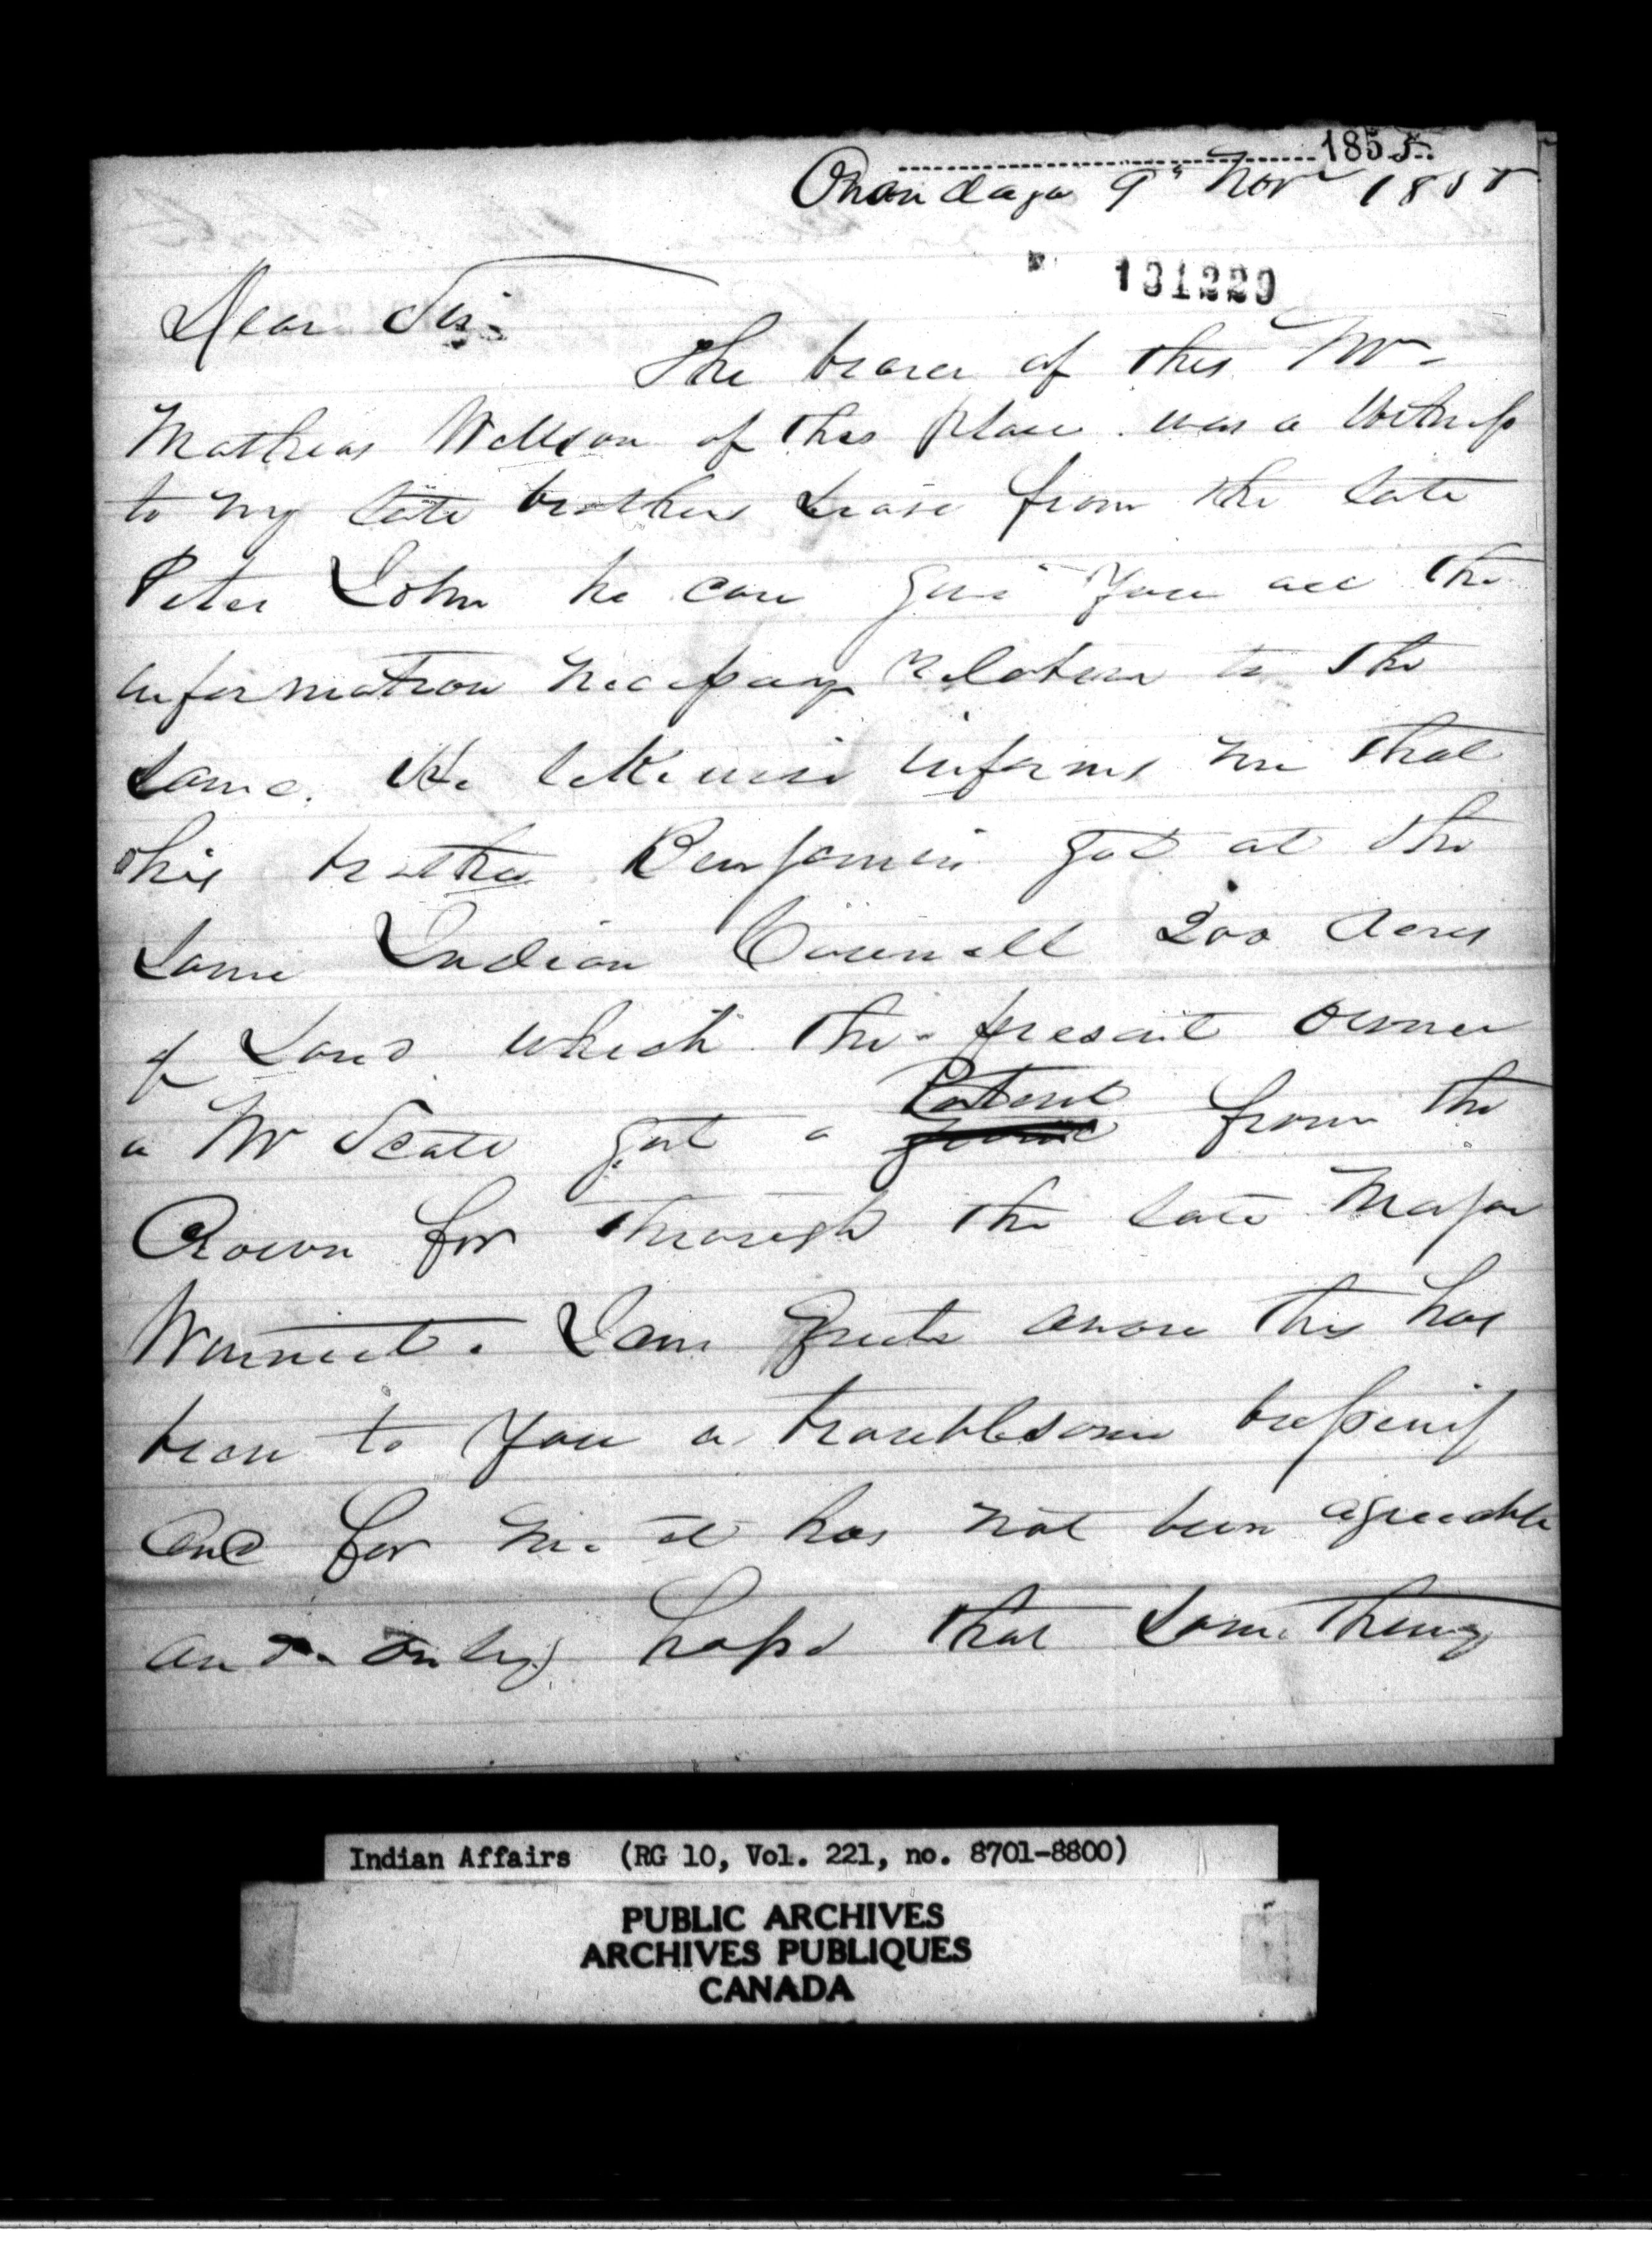 1855
Onondaga 9" Novr 1855
131229
Dear Sir.
The bearer of this Mr
Mathias Willson of this place was a Witness
to my late brothers Lease from the late
Peter John he can give you all the
information necessary relative to the
same. He likewise informs me that
his brother Benjamin got at the
same Indian Councill 200 Acres
of Land which the present owner
a Mr got a Patent from the
Crown for through the late Major
Winniett. I am quite aware this has
been to you a troublesome bussiniss
and for me it has not been agreeable
and only hope that something
Indian Affairs (RG 10, Vol. 221, no. 8701-8800)
PUBLIC ARCHIVES
ARCHIVES PUBLIQUES
CANADA